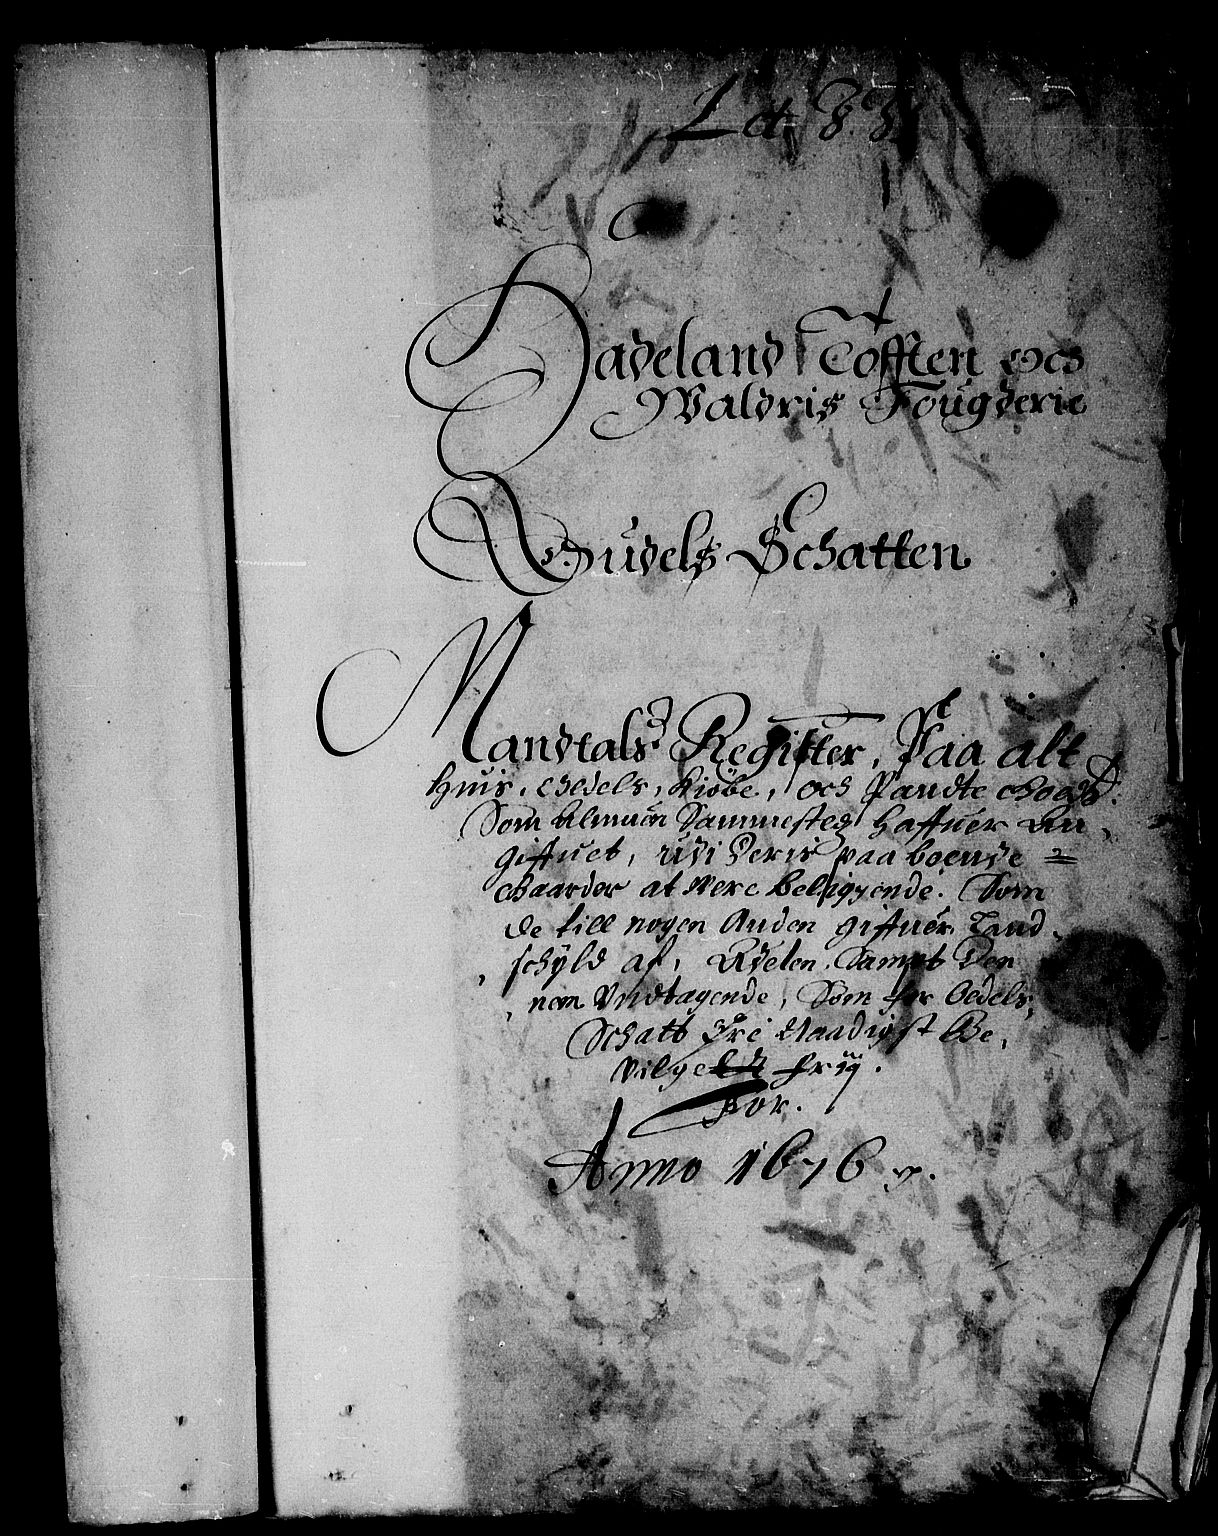 Hadeland Tofften Och
Waldris Fougderie
Oudels Schatten
Mandtals Register, Paa alt
Huis, Oedels, Kiöbe, och Pandte Goeds.
Som Almuen Sammesteds Haffuer An
giffuet, udi deris paa boende =
Gaarder at were beliggende. Som
de till nogen Anden giffuer Land
schyld af, Adelen. Sampt Den
nem Undtagende, Som for Oedels
Schatt Ere Naadigst Be,
vilget frij.
For.
Anno 1676